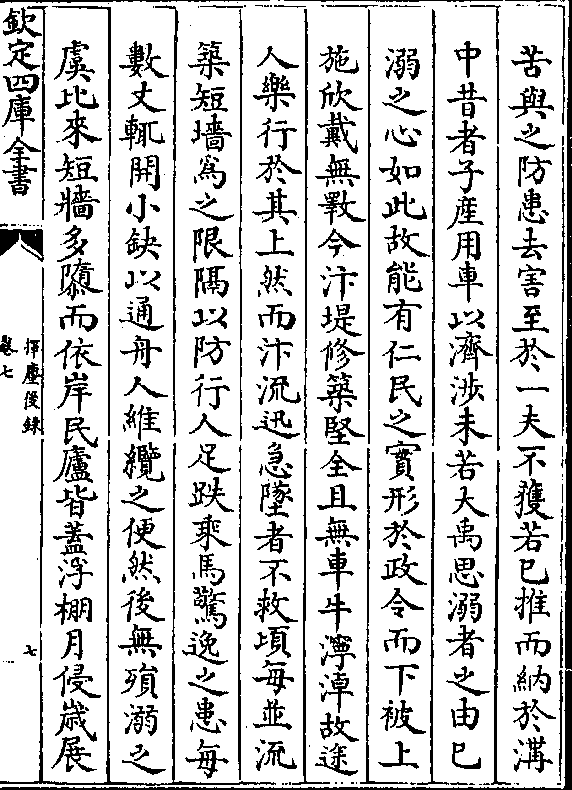 苦與之防患去害至於一夫不獲若已推而納於溝
中昔者子産用車以濟涉未若大禹思溺者之由已
溺之心如此故能有仁民之實形於政令而下被上
施欣戴無斁今汴堤修築堅全且無車牛濘淖故途
人樂行於其上然而汴流迅急墜者不救頃每並流
築短墻為之限隔以防行人足跌乘馬驚逸之患每
數丈輒開小缺以通舟人維纜之便然後無殞溺之
虞比來短牆多隳而依岸民廬皆蓋浮棚月侵歲展
欽定四庫全書
揮麈後録
卷七
七